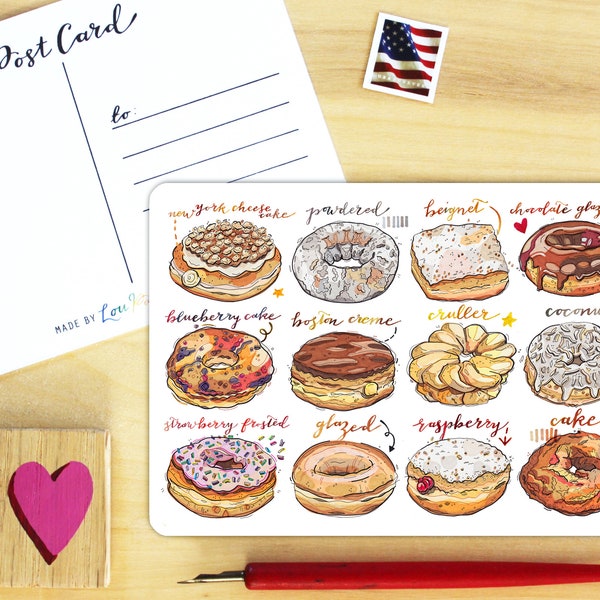 Post Card
to:
MADE BY Lou
new york cheese cake
powdered
beignet
chocolate
blueberry cake
boston creme
cruller
strawberry frosted
glazed
raspberry
cake